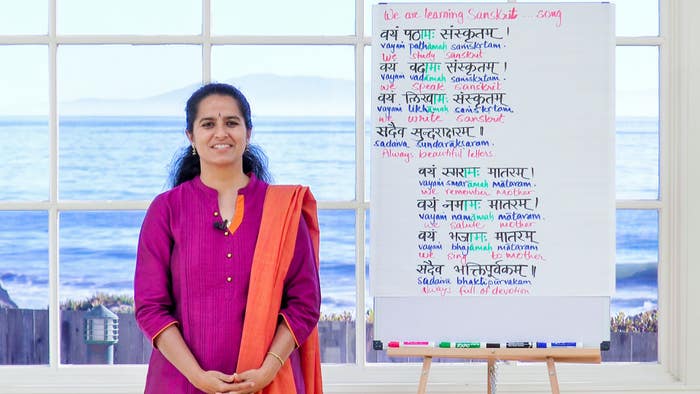 We are learning Sanskrit ... song
वयं पठामः संस्कृतम् ।
vayaṃ paṭhāmaḥ saṃskṛtam.
we study sanskrit
वयं वदामः संस्कृतम् ।
vayaṃ vadāmaḥ saṃskṛtam.
we speak sanskrit
वयं लिखामः संस्कृतम्
vayaṃ likhāmaḥ saṃskṛtam.
we write sanskrit
सदैव सुन्दराक्षरम् ॥
sadaiva sundarākṣaram.
Always beautiful letters
वयं स्मरामः मातरम् ।
vayaṃ smarāmaḥ mātaram.
we remember mother
वयं नमामः मातरम् ।
vayaṃ namāmaḥ mātaram.
we salute mother
वयं भजामः मातरम्
vayaṃ bhajāmaḥ mātaram
we sing to mother
सदैव भक्तिपूर्वकम् ॥
sadaiva bhaktipūrvakam
always full of devotion